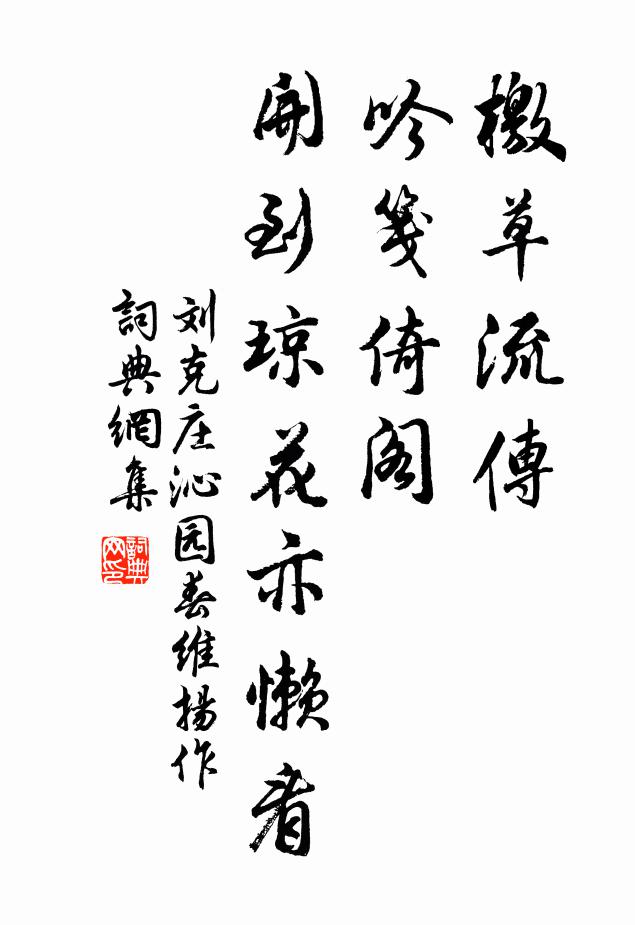 檄草流傳
吟箋倚阁
開到琼花亦懒看
刘克庄沁园春維揚作
詞典網集
詞典网印